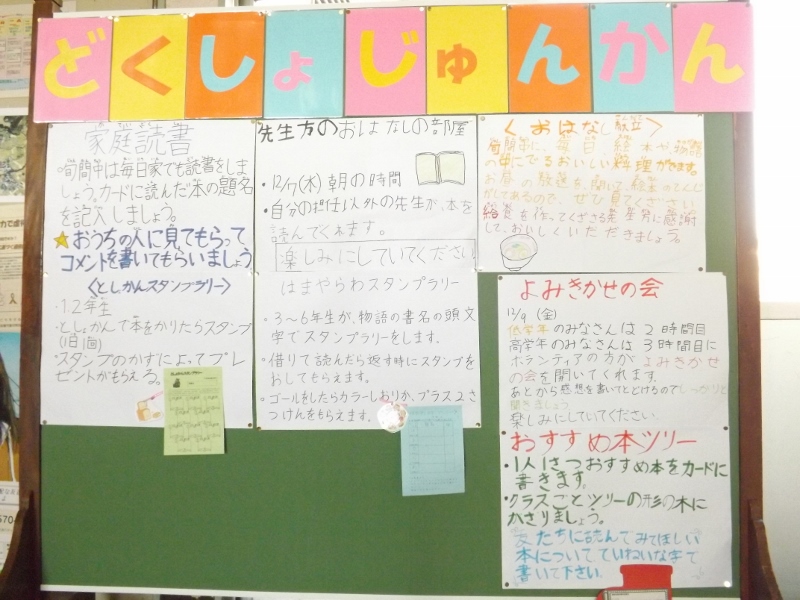 どくしょじゅんかん
家庭読書
・旬間中は毎日家でも読書をしま
しょう。カードに読んだ本の題名
を記入しましょう。
★おうちの人に見てもらって
コメントを書いてもらいましょう
〈としかんスタンプラリー〉
・1.2年生
・としょかんで本をかりたらスタンプ
(1日1回)
・スタンプのかずによってプレ
ゼントがもらえる。
先生方のおはなしの部屋
・12/7(水)朝の時間
・自分の担任以外の先生が、本を
読んでくれます。
楽しみにしていてください
はまやらわスタンプラリー
・3〜6年生が、物語の書名の頭文
字でスタンプラリーをします。
・借りて読んだら返す時にスタンプを
おしてもらえます。
・ゴールをしたらカラーしおりか、プラス2さ
つけんをもらえます。
〈おはなし献立〉
旬間中に、毎日絵本や物語
の中にでるおいしい料理がでます。
お昼の放送を聞いて、給食のてくじ
がしてあるので、ぜひ見てください
給食を作ってくださる先生方に感謝
して、おいしくいただきましょう。
よみきかせの会
12/9 (金)
低学年のみなさんは2時間目
高学年のみなさんは3時間目に
ボランティアの方がよみきかせ
の会を開いてくれます。
あとから感想を書いてとどけるのでしっかりと
聞きましょう
楽しみにしていてください。
おすすめ本ツリー
・1人1さつおすすめ本をカードに
書きます。
・クラスごとツリーの形の木に
かざりましょう。
友たちに読んでみてほしい
本について、ていねいな字で
書いて下さい。